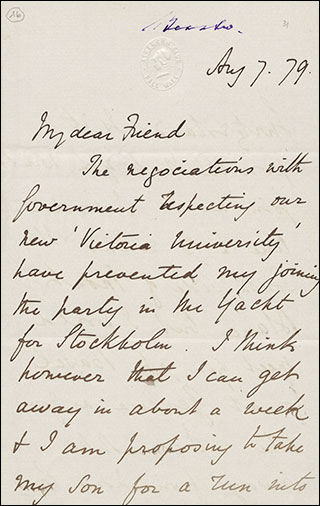 16
Aug 7. 79.
My dear Friend
The negociations with
Government respecting our
new 'Victoria University'
have prevented my joining
the party in the Yacht
for Stockholm. I think
however that I can get
away in about a week
& I am proposing to take
my son for a run into